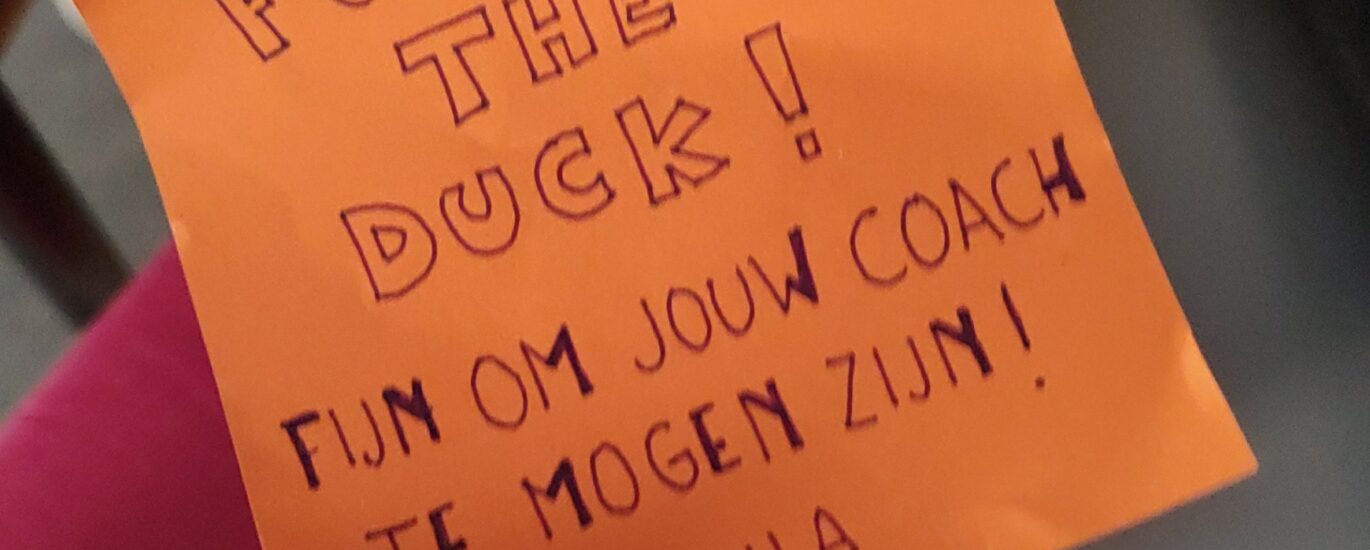 THE
DUCK!
FIJN OM JOUW COACH
TE MOGEN ZIJN!